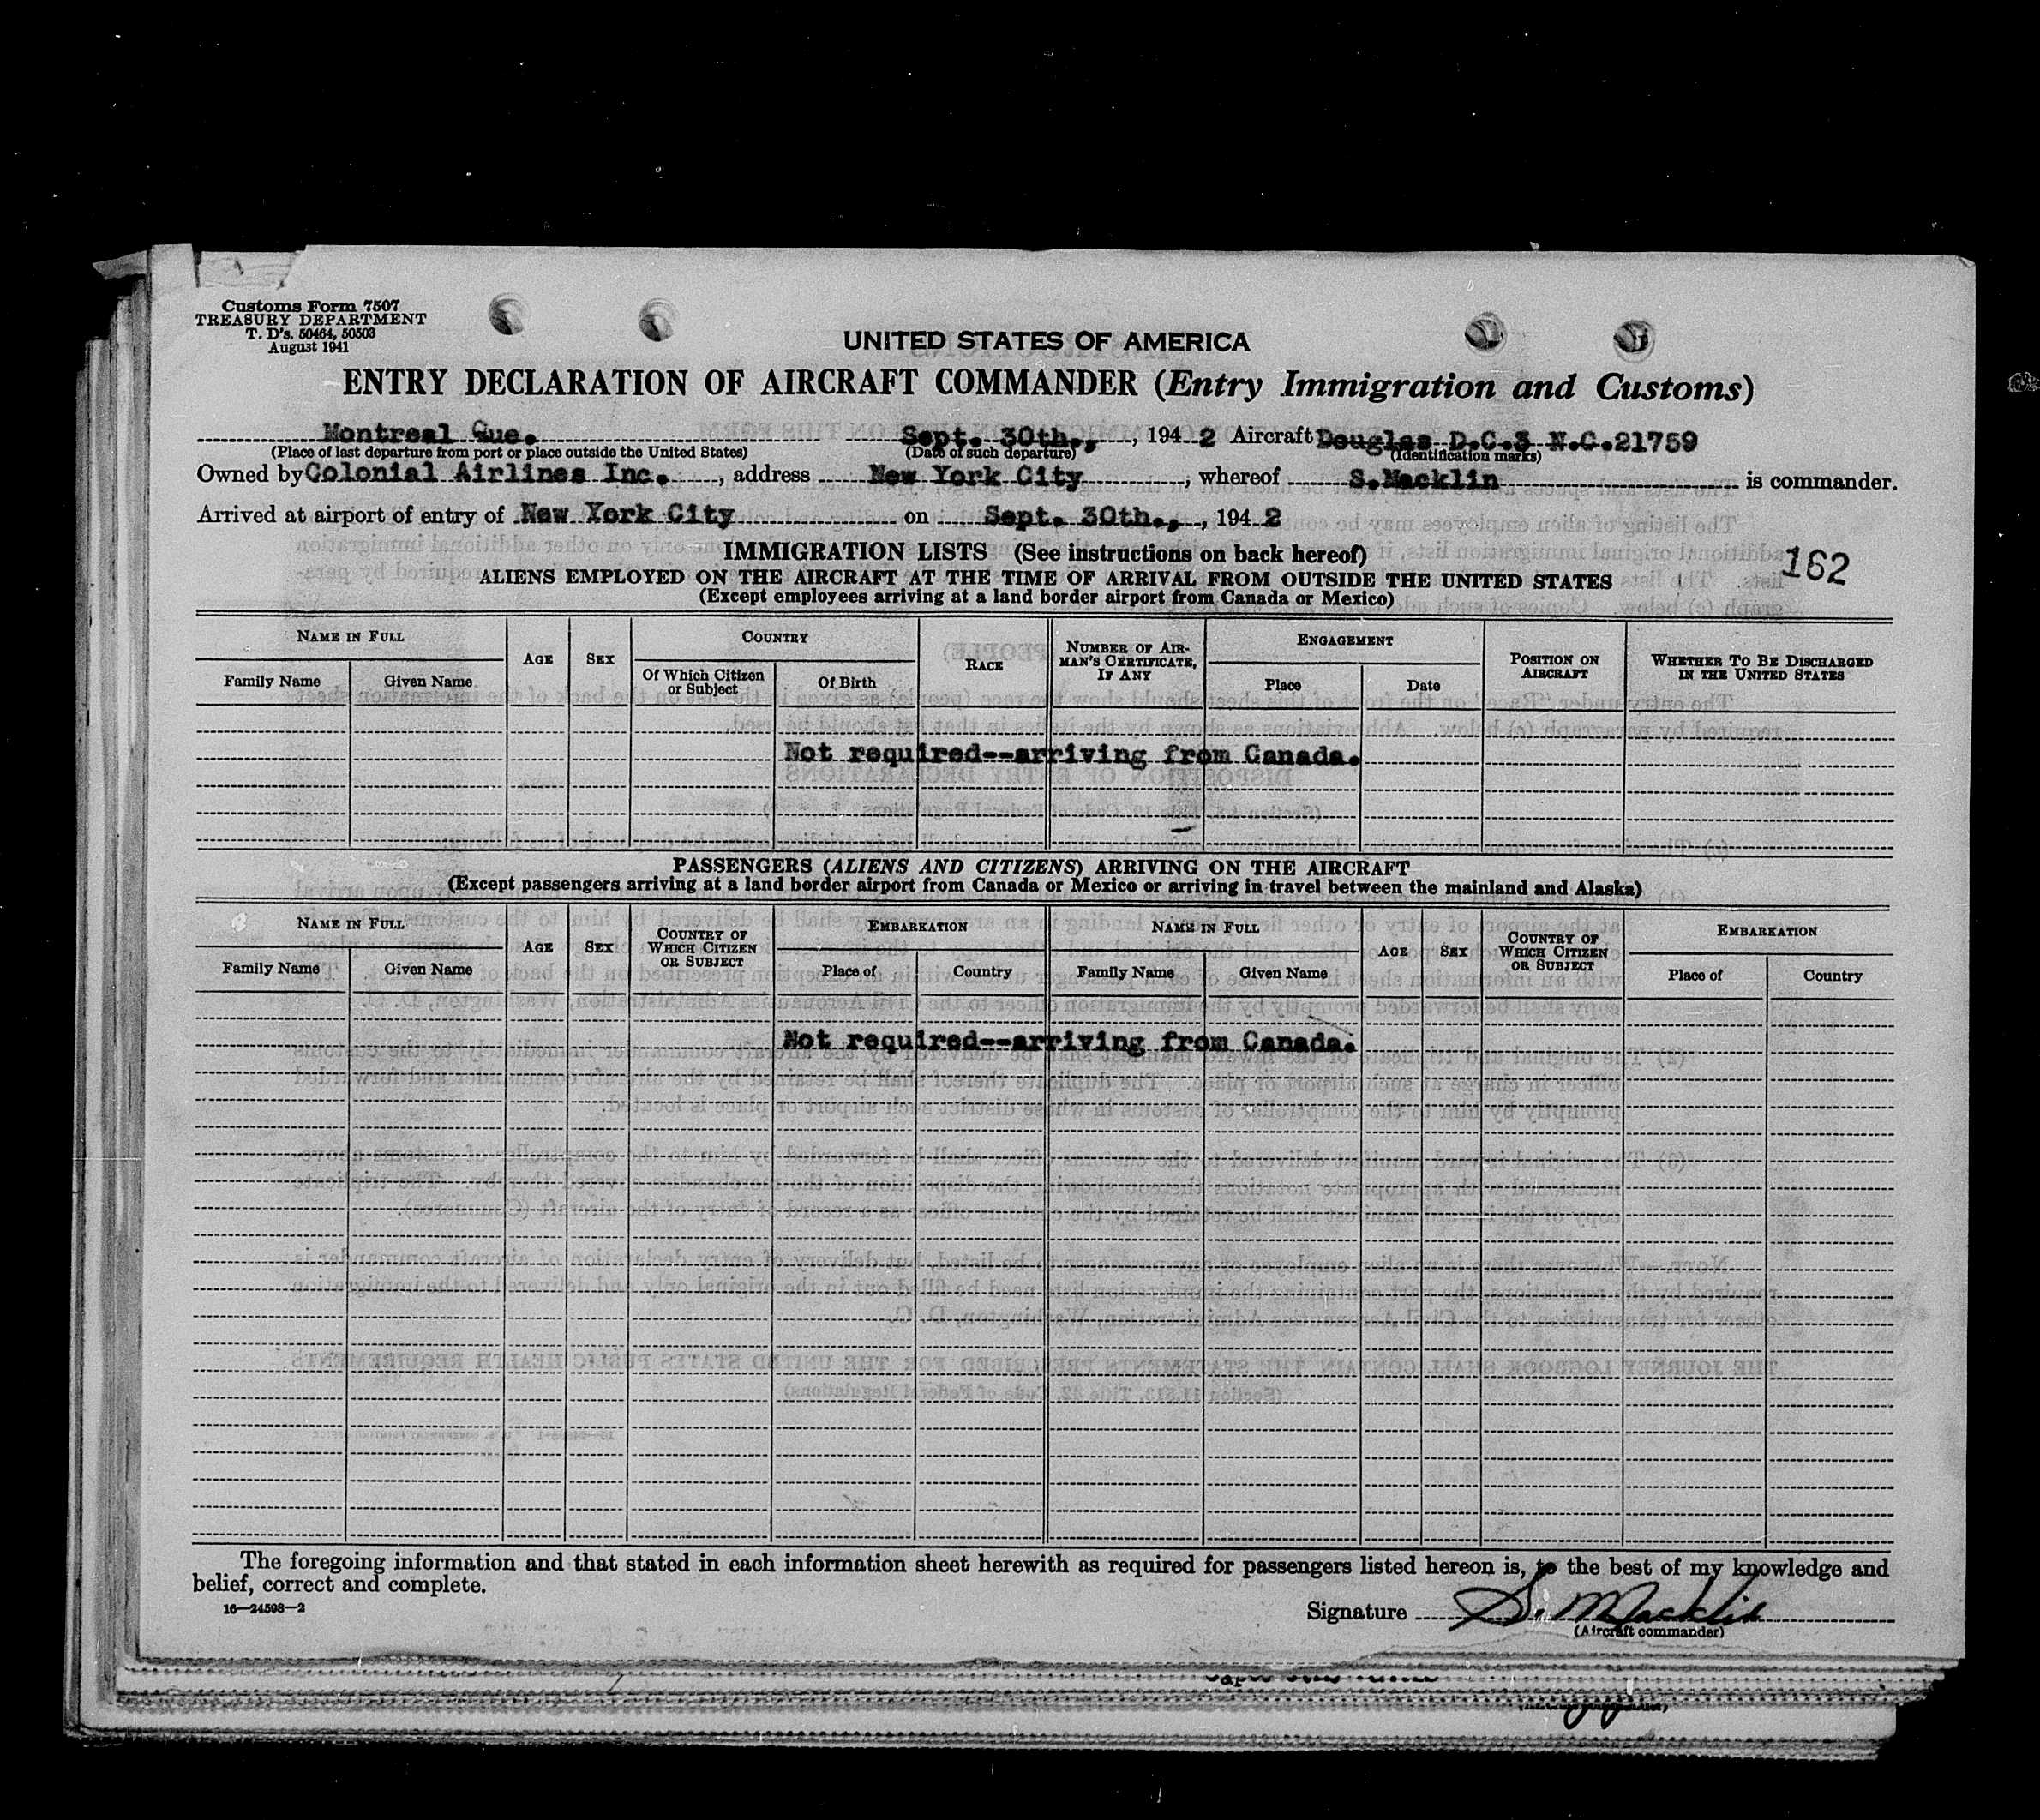 Customs Form 7507
TREASURY DEPARTMENT
T. D's. 50464, 50503
August 1941
UNITED STATES OF AMERICA
ENTRY DECLARATION OF AIRCRAFT COMMANDER (Entry Immigration and Customs)
Montreal Que. Sept. 30th., , 194 2 Aircraft Douglas D.C.3 N.C.21759
(Place of last departure from port or place outside the United States) (Date of such departure) (Identification marks)
Owned by Colonial Airlines Inc. , address New York City , whereof S.Macklin is commander.
Arrived at airport of entry of New York City on Sept. 30th., , 194 2
IMMIGRATION LISTS (See instructions on back hereof)
162
ALIENS EMPLOYED ON THE AIRCRAFT AT THE TIME OF ARRIVAL FROM OUTSIDE THE UNITED STATES
(Except employees arriving at a land border airport from Canada or Mexico)
NAME IN FULL AGE SEX COUNTRY RACE NUMBER OF AIRMAN'S CERTIFICATE, IF ANY ENGAGEMENT POSITION ON AIRCRAFT WHETHER TO BE DISCHARGED IN THE UNITED STATES
Family Name Given Name Of Which Citizen or Subject Of Birth Place Date
Not required--arriving from Canada.
PASSENGERS (ALIENS AND CITIZENS) ARRIVING ON THE AIRCRAFT
(Except passengers arriving at a land border airport from Canada or Mexico or arriving in travel between the mainland and Alaska)
NAME IN FULL AGE SEX COUNTRY OF WHICH CITIZEN OR SUBJECT EMBARKATION NAME IN FULL AGE SEX COUNTRY OF WHICH CITIZEN OR SUBJECT EMBARKATION
Family Name Given Name Place of Country Family Name Given Name Place of Country
Not required--arriving from Canada.
The foregoing information and that stated in each information sheet herewith as required for passengers listed hereon is, to the best of my knowledge and
belief, correct and complete.
16—24598—2
Signature S. Macklin
(Aircraft commander)